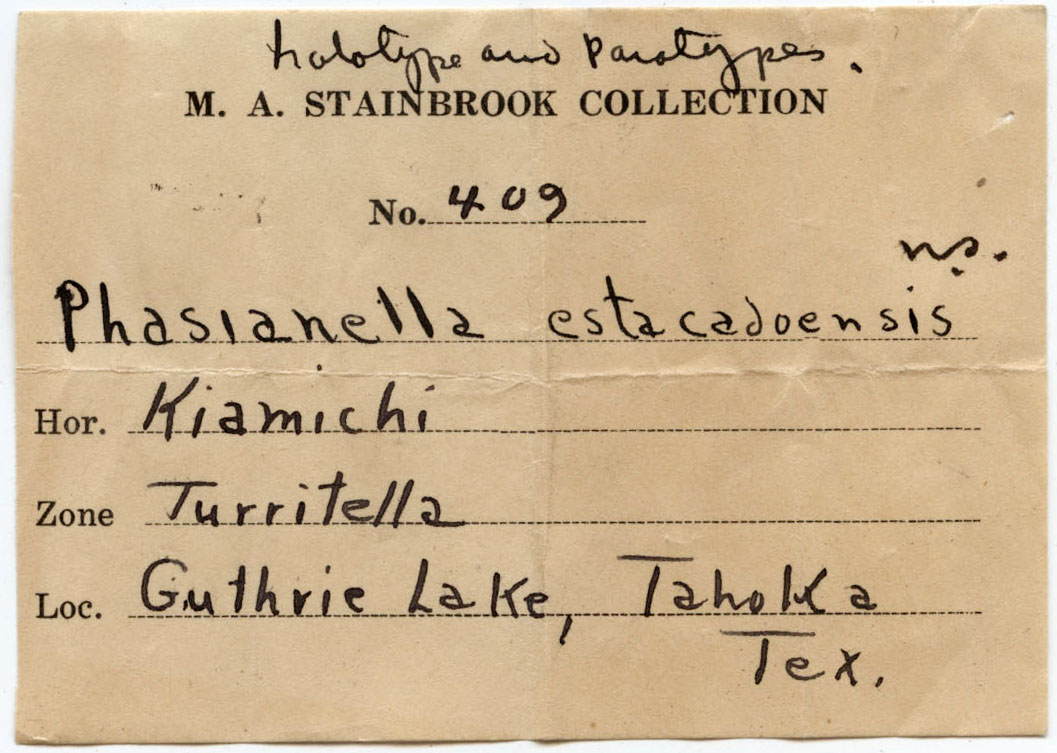 holotype and Paratypes.
M. A. STAINBROOK COLLECTION
No. 409
n.s.
Phasianella estacadoensis
Hor. Kiamichi
Zone Turritella
Loc. Guthrie Lake, Tahoka
Tex.